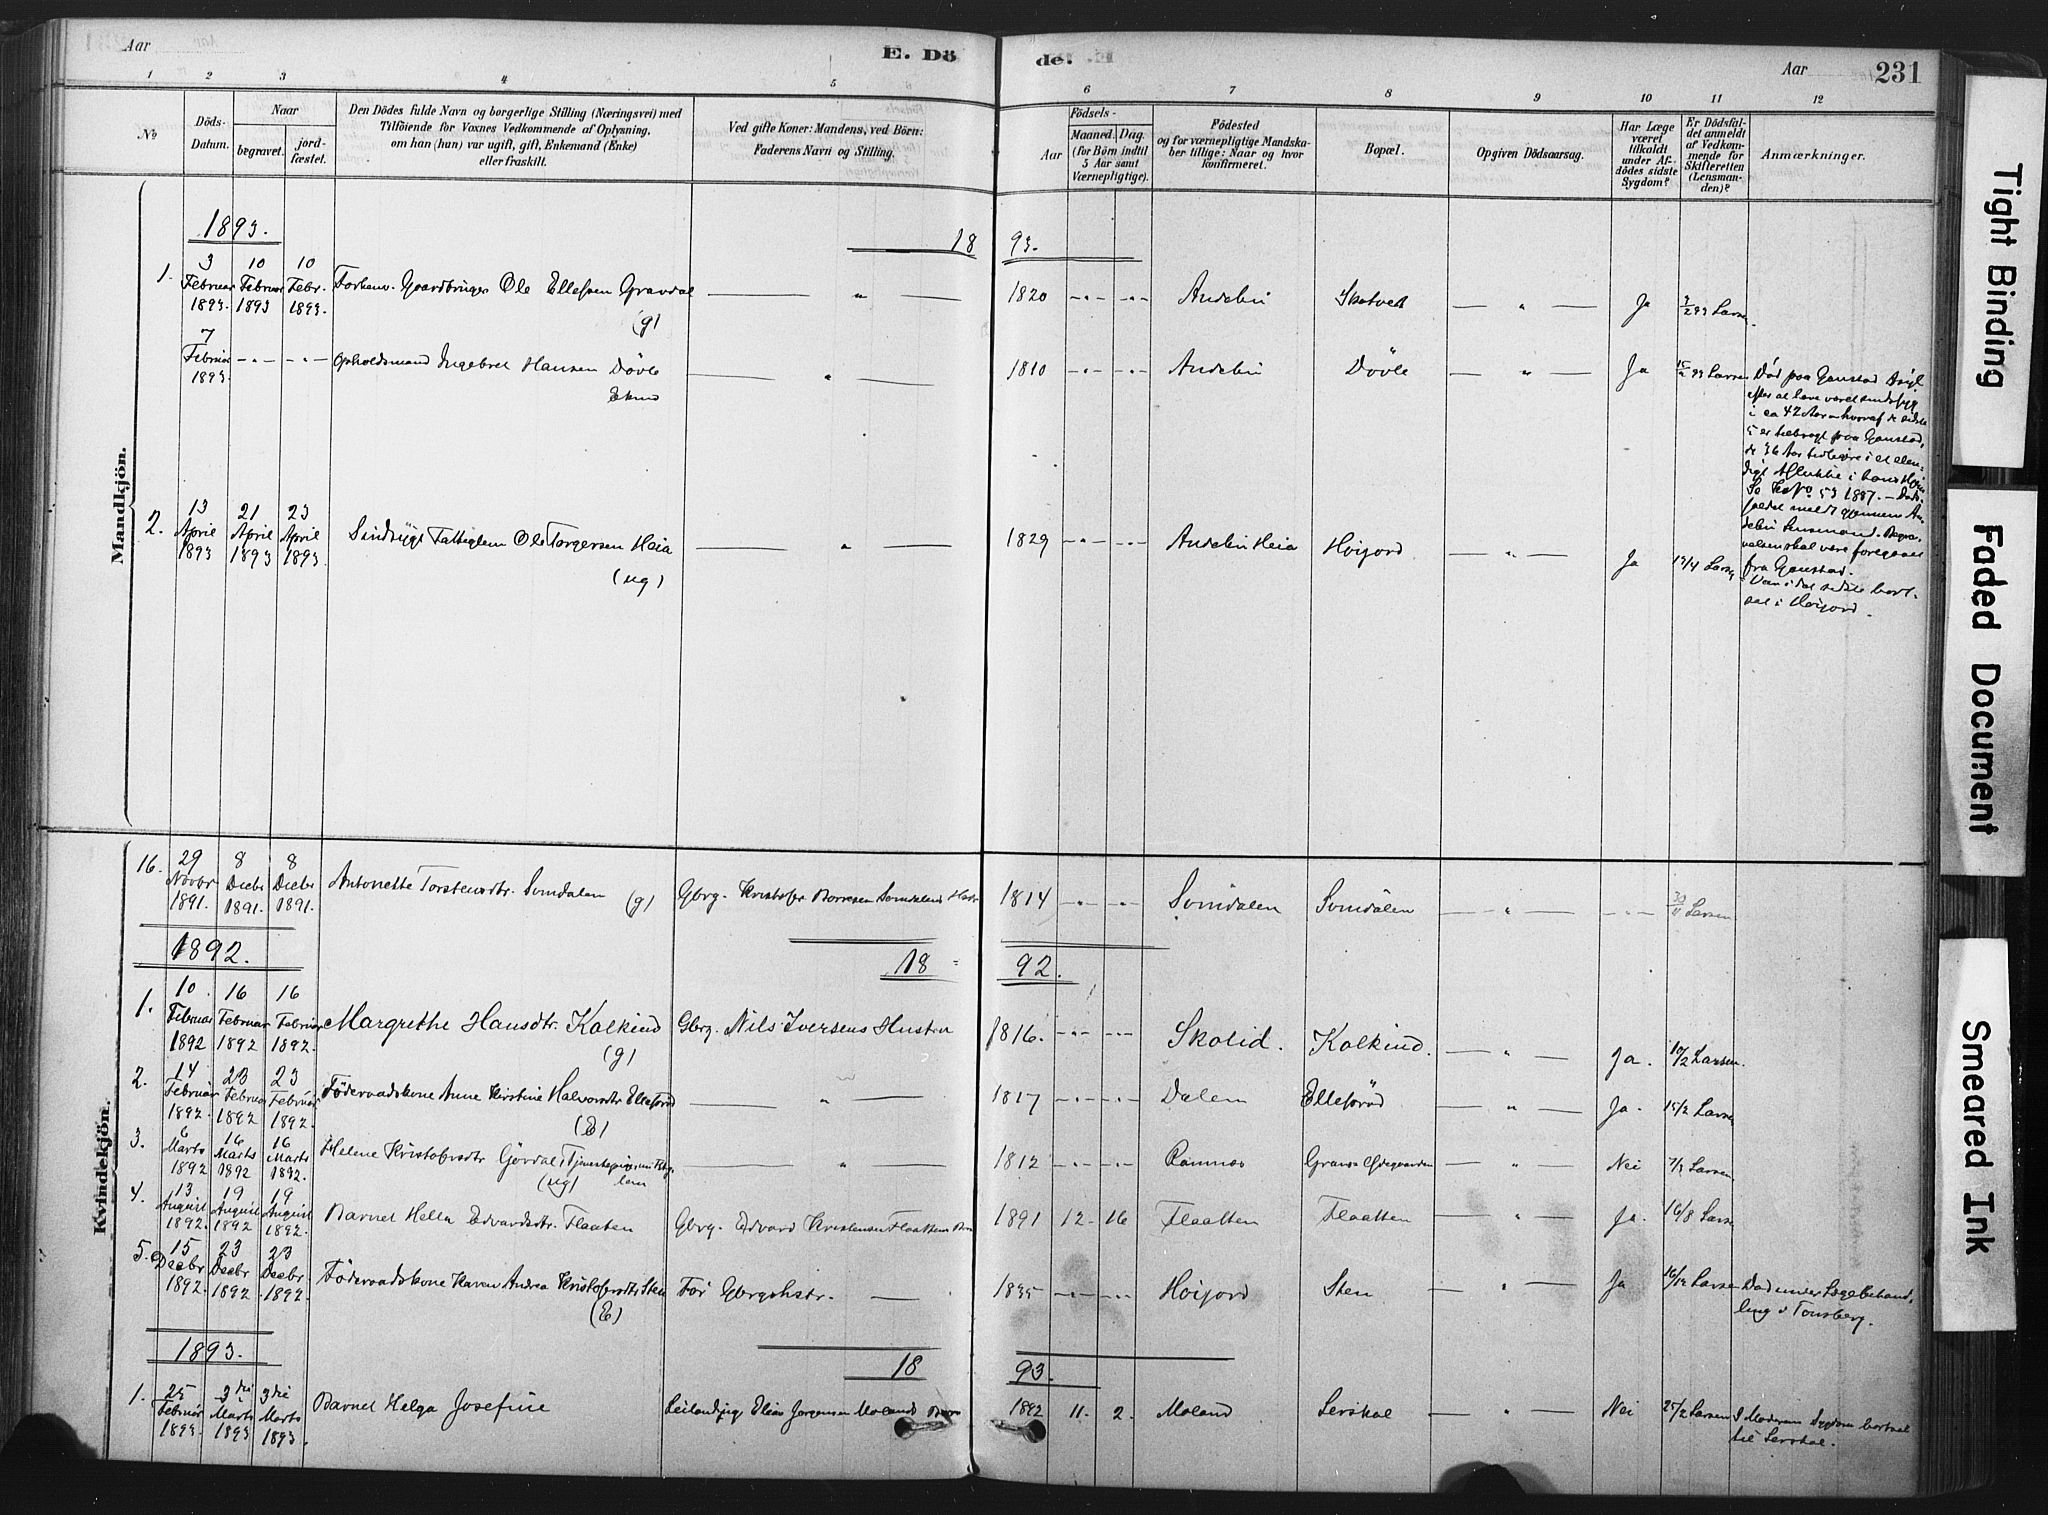 Aar
E. Dö
de.
Aar
231
1 2 3 4 5 6 7 8 9 10 11 12
No
Döds-
Datum.
Naar
begravet.
jord-
fæstet.
Den Dödes fulde Navn og borgerlige Stilling (Næringsvei) med
Tilföiende for Voxnes Vedkommende af Oplysning,
om han (hun) var ugift, gift, Enkemand (Enke)
eller fraskilt.
Ved gifte Koner: Mandens, ved Börn:
Faderens Navn og Stilling.
Födsels-
Aar
Maaned.
Dag.
(for Börn indtil
5 Aar samt
Værnepligtige).
Födested
og for værnepligtige Mandska-
ber tillige: Naar og hvor
konfirmeret.
Bopæl.
Opgiven Dödsaarsag.
Har Læge
været
tilkaldt
under Af-
dödes sidste
Sygdom?
Er Dödsfal-
det anmeldt
af Vedkom-
mende for
Skifteretten
(Lensman-
den)?
Anmærkninger.
Mandkjön.
1893.
18 93.
1. 3 Februar 1893. 10 Februar 1893 10 Febr. 1893. Forhenv. Gaardbruger Ole Ellefsen Gravdal (g) — " — 1820 -"- -"- Andebu Skatvedt — " — Ja 9/2 93 Larsen.
7 Februar 1893. -"- -"- Opholdsmand Ingebret Hansen Dövle Ekm — " — 1810 -"- -"- Andebu Dövle — " — Ja 15/2 93 Larsen
Död paa Gaustad Asyl
efter at have været sindssyg
i ca 42 Aar hvoraf de sidste
5 er tilbragt paa Gaustad,
de 36 Aar tidligere i et elen-
digt Aflukke i hans Hjem
Se No 53 1887. — Döds-
faldet meldt gjennem An-
debu Lensmand. Begra-
velsen skal være foregaaet
fra Gaustad.
2. 13 April 1893 21 April 1893 23 April 1893. Sindssyge Fattiglem Ole Torgersen Heia (ug) — " — 1829 -"- -"- Andebu Heia Höijord — " — Ja 17/4 Larsen
Var i det sidste bort-
sat i Höijord.
Kvindekjön.
16. 29 Novbr 1891. 8 Decbr 1891. 8 Decbr 1891. Antonette Torstensdtr. Somdalen (g) Gbrg. Kristofer Borresen Somdalens Hustr 1814 -"- -"- Somdalen Somdalen — " — -"- 30/11 Larsen
1892.
18 92.
1. 10 Februar 1892 16 Februar 1892 16 Februar 1892. Margrethe Hansdtr. Kolkind (g) Gbrg. Nils Iversens Hustru 1816. -"- -"- Skolid. Kolkind. — " — Ja. 10/2 Larsen.
2. 14 Februar 1892. 23 Februar 1892 23 Februar 1892. Föderaadskone Anne Kirstine Halvorsdtr Ellefsröd (E) — " — 1817 -"- -"- Dalen Ellefsröd — " — Ja. 15/2 Larsen
3. 6 Marts 1892 16 Marts 1892 16 Marts 1892. Helene Kristofersdtr Gördal, Tjenestepige (ug) — " — 1812 -"- -"- Ramnæs — " — Nei 7/3 Larsen
4. 13 August 1892. 19 August 1892 19 August 1892. Barnet Hella Edvardsdtr. Flaaten Gbrg. Edvard Kristensen Flaattens Barn 1891 12. 16 Flaatten Flaatten — " — Ja. 16/8 Larsen
5. 15 Decbr 1892. 23 Decbr 1892 23 Decbr 1892. Föderaadskone Karen Andrea Kristofersdtr Sten (E) För Gbrgshstr. — 1835 -"- -"- Höijord Sten — " — Ja 16/12 Larsen Död under Lægebehand-
ling i Tonsberg.
1893.
18 93.
1. 25 Februar 1893. 3die Marts 1893 3die Marts 1893. Barnet Helga Josefine Leilending Elias Jorgensen Molands Barn 1892 11. 2. Moland Lerskal — " — Nei 25/2 Larsen I Moderens Sygdom bortsat
til Lerskal.
Tight Binding
Faded Document
Smeared Ink